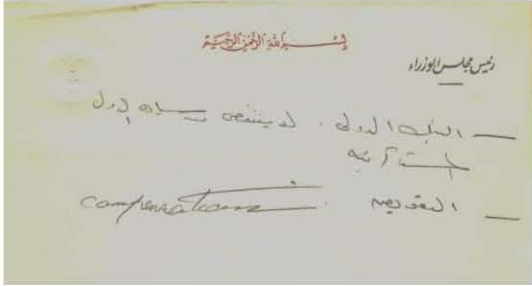 بسم الله الرحمن الرحيم
رئيس مجلس الوزراء
— البنك الدولي . لا ينتقص سيادة الدول
— التعويض . compensations